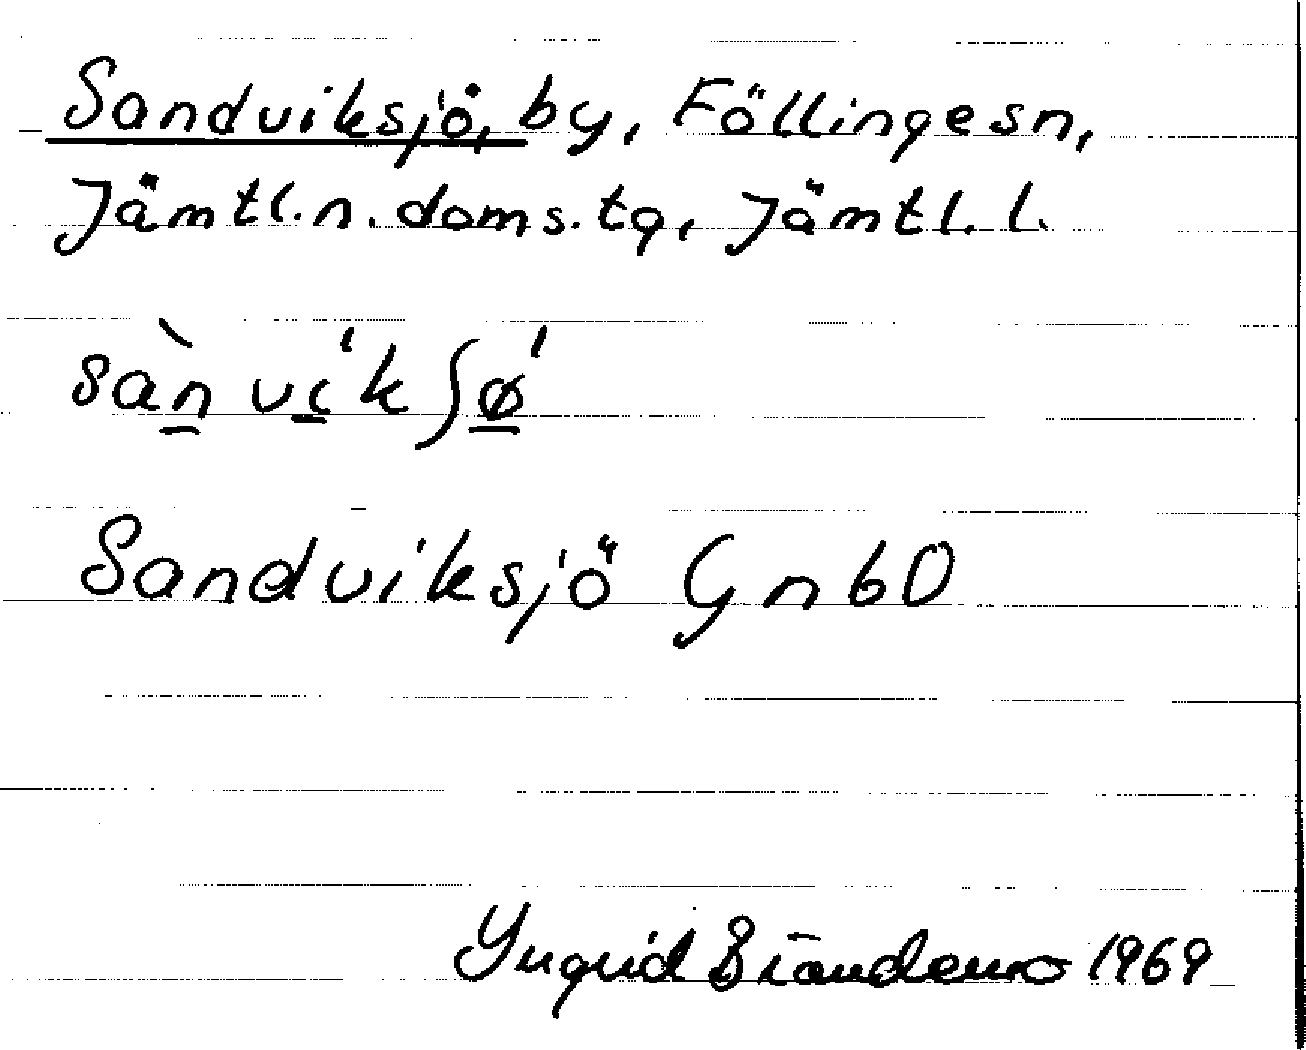 Sandviksjö, by, Föllinge sn,
Jämtl. n. doms. tg, Jämtl. l.
sàn vík ʃǿ
Sandviksjö GnbD
Yngrid Brändemo 1969